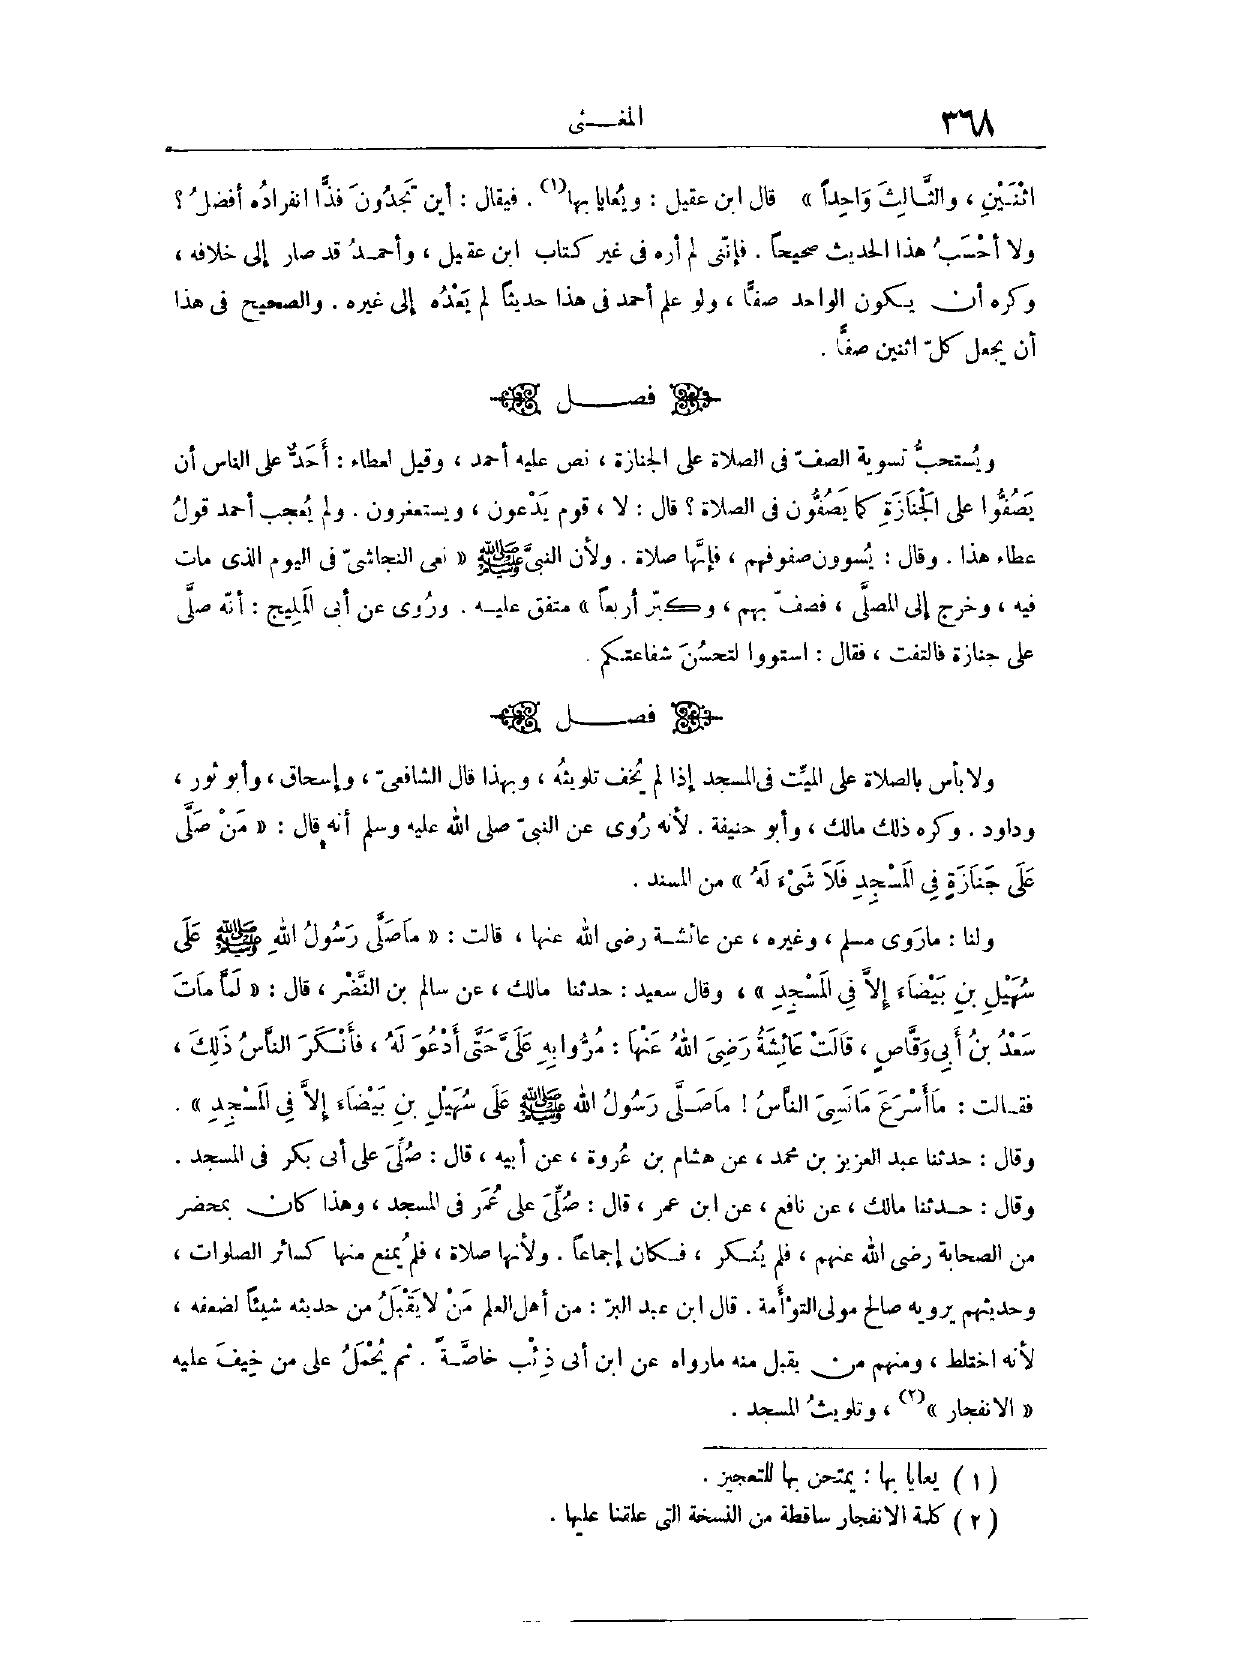 ٣٦٨ المغـــنى
اثْنَـيْنِ ، والثَّـالِثَ وَاحِداً » قال ابن عقيل : ويُعايا بها(١) . فيقال : أين تَجدُونَ فذًّا انفرادُه أفضلُ ؟
ولا أحْسَبُ هذا الحديث صحيحاً . فإنّنى لم أره فى غير كتاب ابن عقيل ، وأحمـدُ قد صار إلى خلافه ،
وكره أن يـكون الواحد صفًّا ، ولو علم أحمد فى هذا حديثاً لم يَعْدُه إلى غيره . والصحيح فى هذا
أن يجعل كلّ اثنين صفًّا .
فصـــل
ويُستحبُّ تسوية الصفّ فى الصلاة على الجنازة ، نص عليه أحمد ، وقيل لعطاء : أَحَدٌ على الناس أن
يَصُفُّوا على الْجَنَازَةِ كما يَصُفُّون فى الصلاة ؟ قال : لا ، قوم يَدْعون ، ويستغفرون . ولم يُعجب أحمد قولُ
عطاء هذا . وقال : يُسوون صفوفهم ، فإنَّها صلاة . ولأن النبىَّ ﷺ « نعى النجاشىّ فى اليوم الذى مات
فيه ، وخرج إلى المصلَّى ، فصفّ بهم ، وكبّر أربعاً » متفق عليـه . ورُوى عن أبى المَلِيج : أنّه صلَّى
على جنازة فالتفت ، فقال : استووا لتحسُنَ شفاعتـكم .
فصـــل
ولا بأس بالصلاة على الميِّت فى المسجد إذا لم يُخف تلويثُه ، وبهذا قال الشافعىّ ، وإسحاق ، وأبو ثور ،
وداود . وكره ذلك مالك ، وأبو حنيفة . لأنه رُوى عن النبىّ صلى الله عليه وسلم أنه قال : « مَنْ صَلَّى
عَلَى جَنَازَةٍ فِي الْمَسْجِدِ فَلاَ شَىْءَ لَهُ » من المسند .
ولنا : مارَوى مسلم ، وغيره ، عن عائشـة رضى الله عنها ، قالت : « مَاصَلَّى رَسُولُ اللهِ ﷺ عَلَى
سُهَيْلِ بنِ بَيْضَاءَ إِلاَّ فِي الْمَسْجِدِ » ، وقال سعيد : حدثنا مالك ، عن سالم بن النَّضْر ، قال : « لَمَّا مَاتَ
سَعْدُ بنُ أَبِى وَقَّاصٍ ، قَالَتْ عَائِشَةُ رَضِىَ اللهُ عَنْهَا : مُرُّوا بِهِ عَلَىَّ حَتَّى أَدْعُوَ لَهُ ، فَأَنْـكَرَ النَّاسُ ذَلِكَ ،
فقـالت : مَاأَسْرَعَ مَانَسِىَ النَّاسُ ! مَاصَـلَّى رَسُولُ الله ﷺ عَلَى سُهَيْلِ بنِ بَيْضَاءَ إِلاَّ فِي الْمَسْجِدِ » .
وقال : حدثنا عبد العزيز بن محمد ، عن هشام بن عُروة ، عن أبيه ، قال : صُلِّىَ على أبى بكر فى المسجد .
وقال : حـدثنا مالك ، عن نافع ، عن ابن عمر ، قال : صُلِّىَ على عُمَر فى المسجد ، وهذا كان بمحضر
من الصحابة رضى الله عنهم ، فلم يُنـكر ، فـكان إجماعاً . ولأنها صلاة ، فلم يُمنع منها كسائر الصلوات ،
وحديثهم يرويه صالح مولى التوْأَمة . قال ابن عبد البرّ : من أهل العلم مَنْ لا يَقْبَلُ من حديثه شيئاً لضعفه ،
لأنه اختلط ، ومنهم من يقبل منه مارواه عن ابن أبى ذِئْب خاصَّـةً . ثم يُحْمَلُ على من خِيفَ عليه
« الانفجار »(٢) ، وتلويثُ المسجد .
(١) يعايا بها : يمتحن بها للتعجيز .
(٢) كلمة الانفجار ساقطة من النسخة التى علقنا عليها .